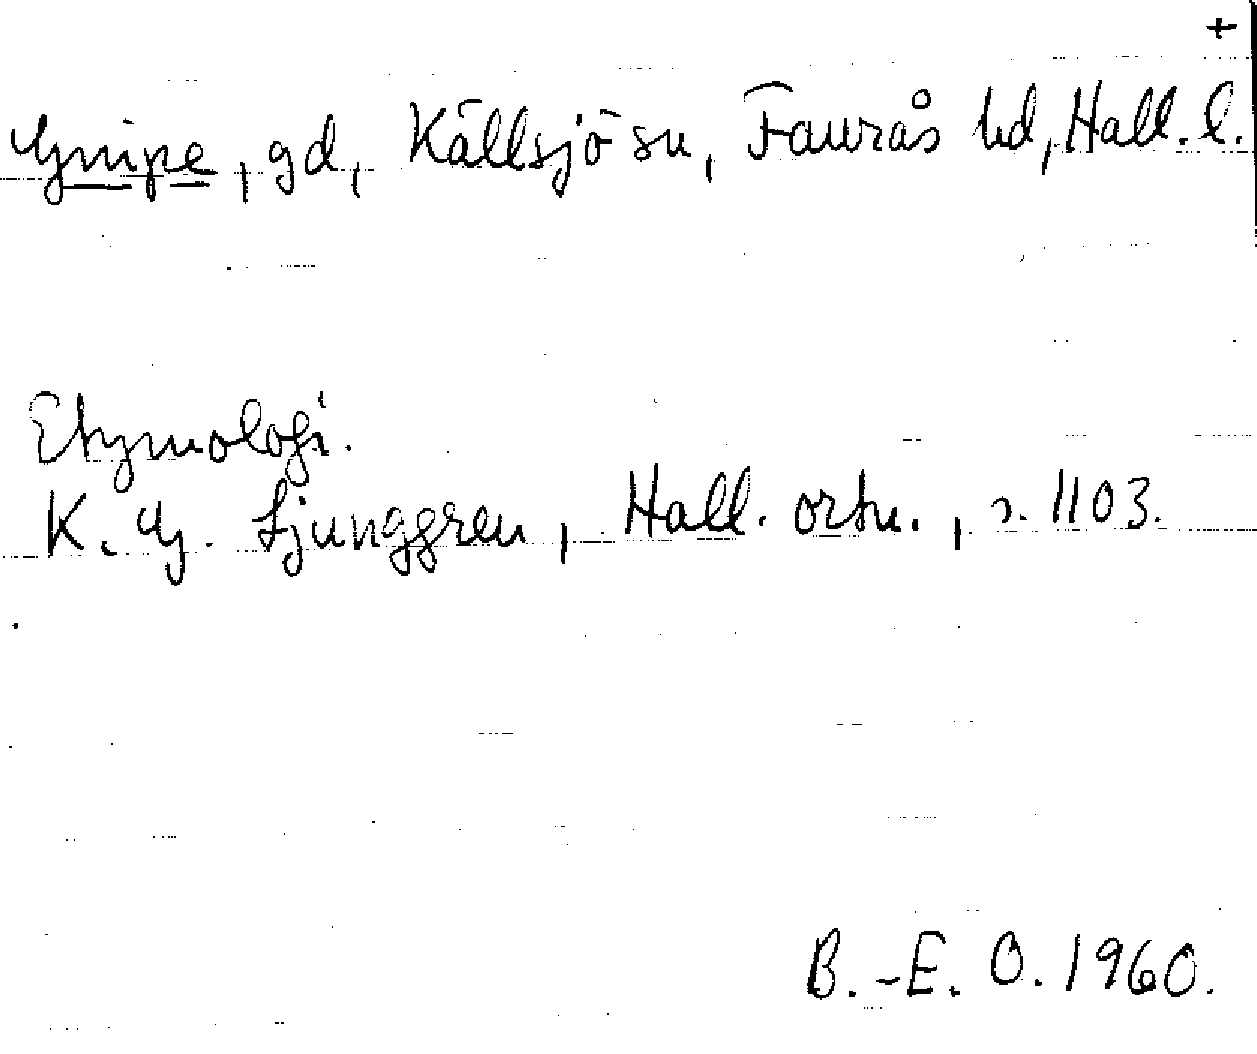 +
Gnipe, gd, Källsjö sn, Faurås hd, Hall. l.
Etymologi.
K. G. Ljunggren, Hall. ortn., s. 1103.
B.-E. O. 1960.